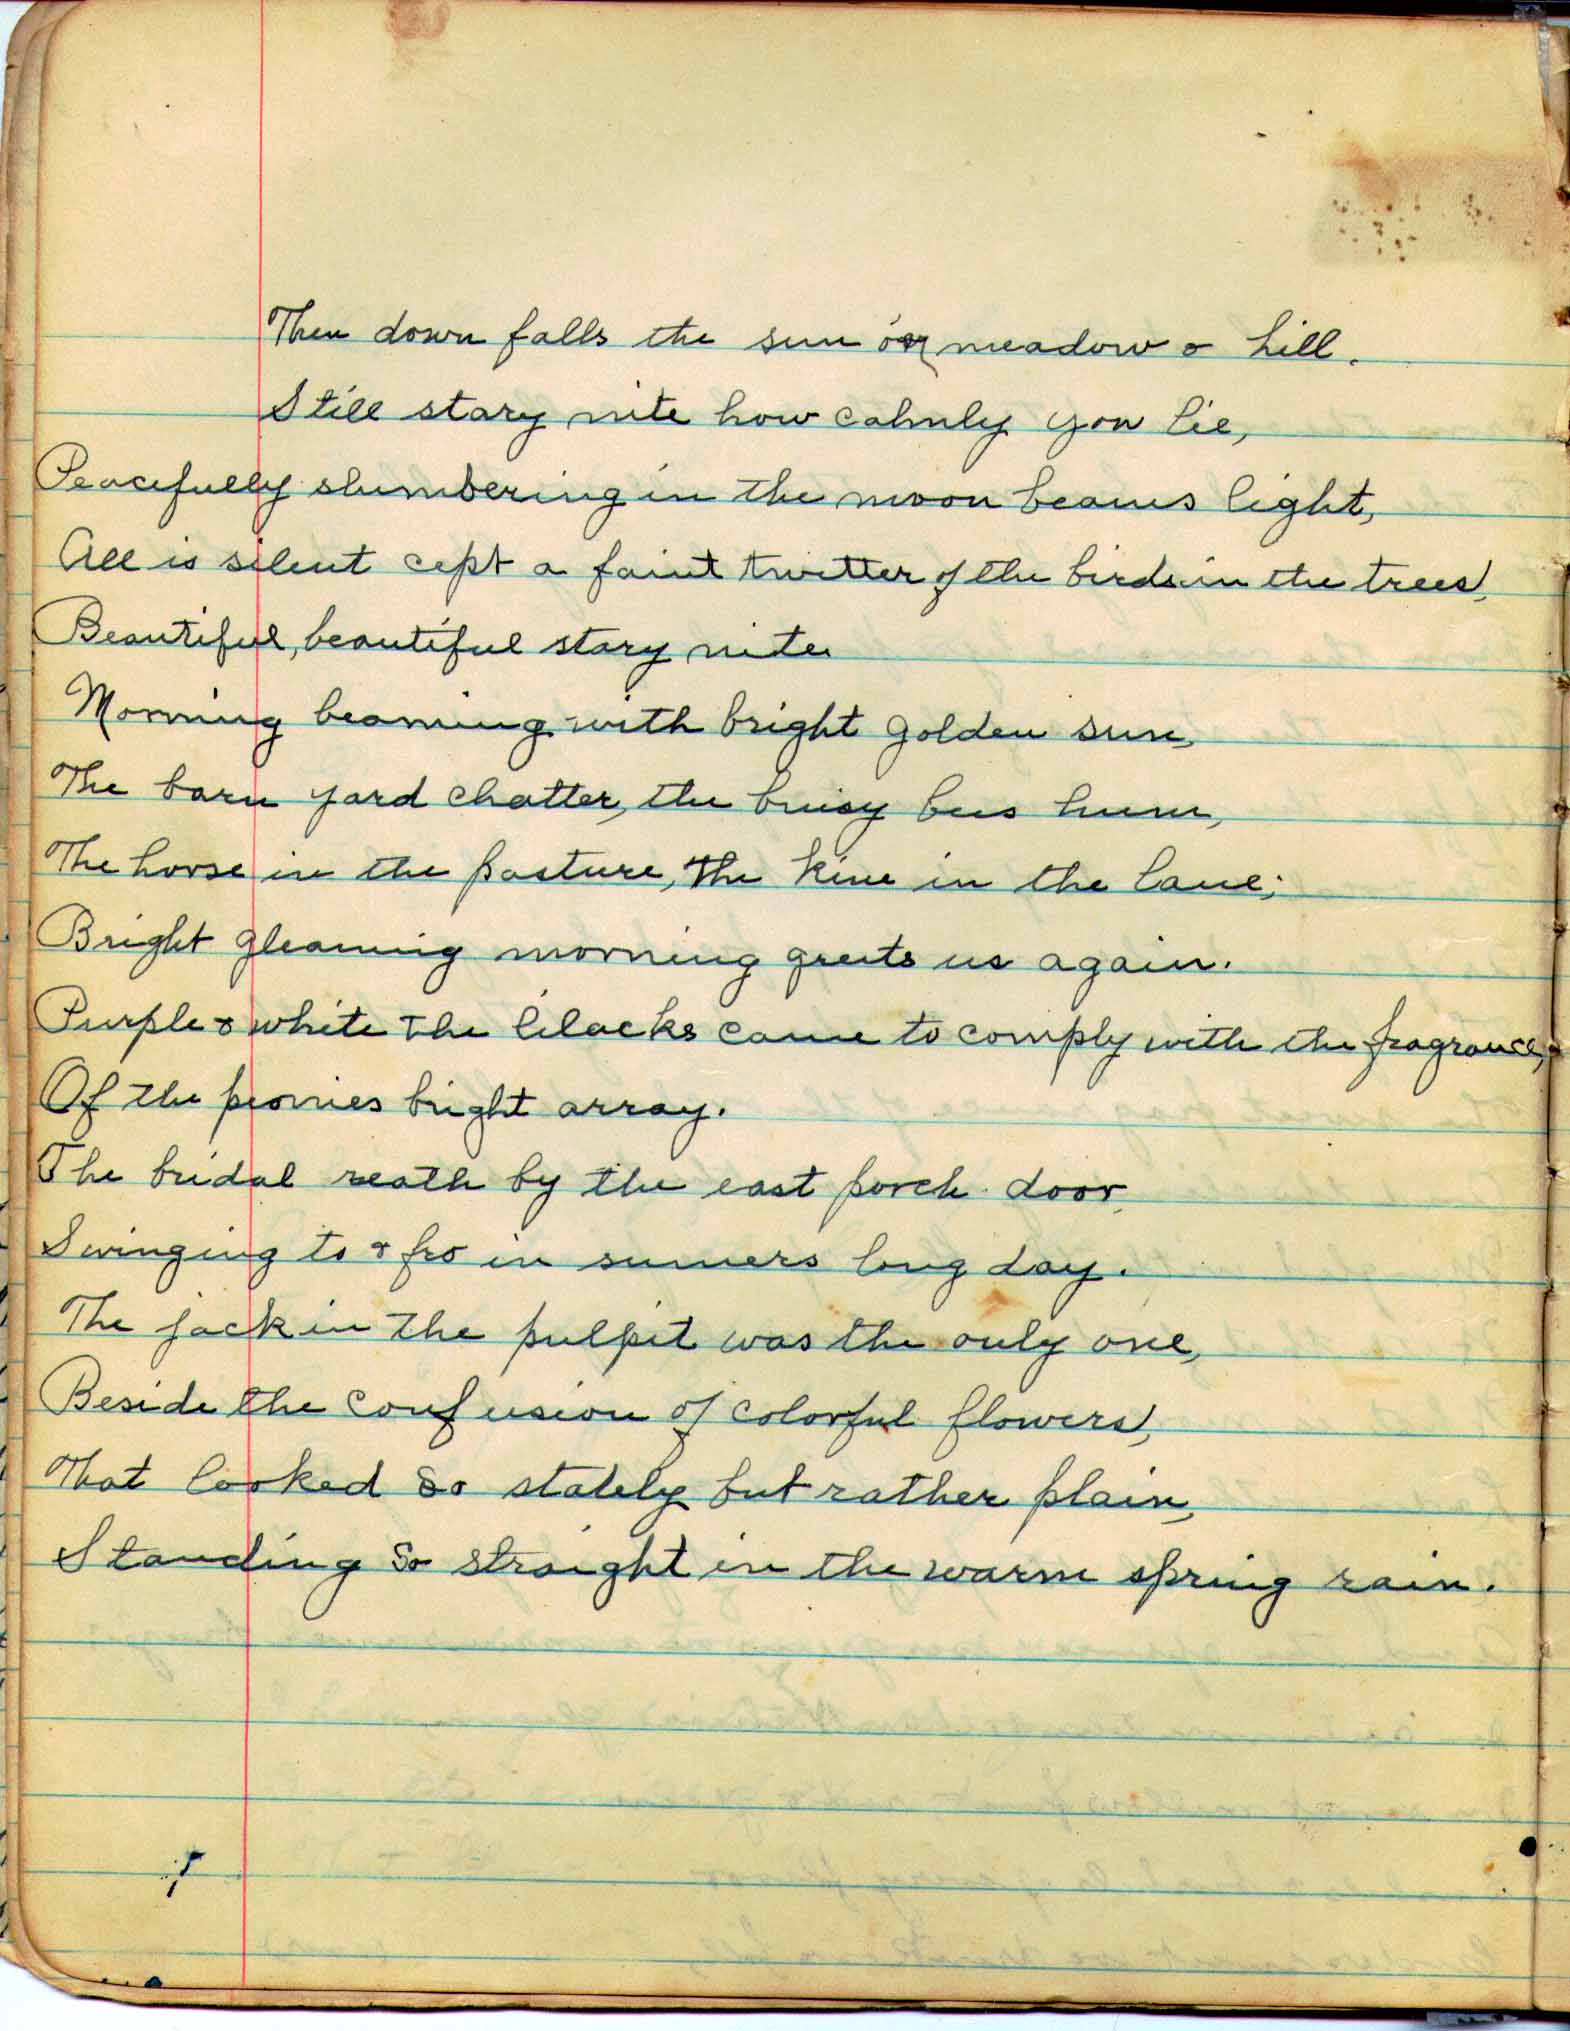 Then down falls the sun o'er meadow & hill.
Still stary nite how calmly you lie,
Peacefully slumbering in the moon beams light,
All is silent cept a faint twitter of the birds in the trees,
Beautiful, beautiful stary nite
Morning beaming with bright golden sun,
The barn yard chatter, the buisy bees hum,
The horse in the pasture, the kine in the lane;
Bright gleaming morning greets us again.
Purple & white the lilacks came to comply with the fragrance,
Of the peonies bright array.
The bridal reath by the east porch door,
Swinging to & fro in sumers long day.
The jack in the pulpit was the only one,
Beside the confusion of colorful flowers,
That looked so stately but rather plain,
Standing so straight in the warm spring rain.